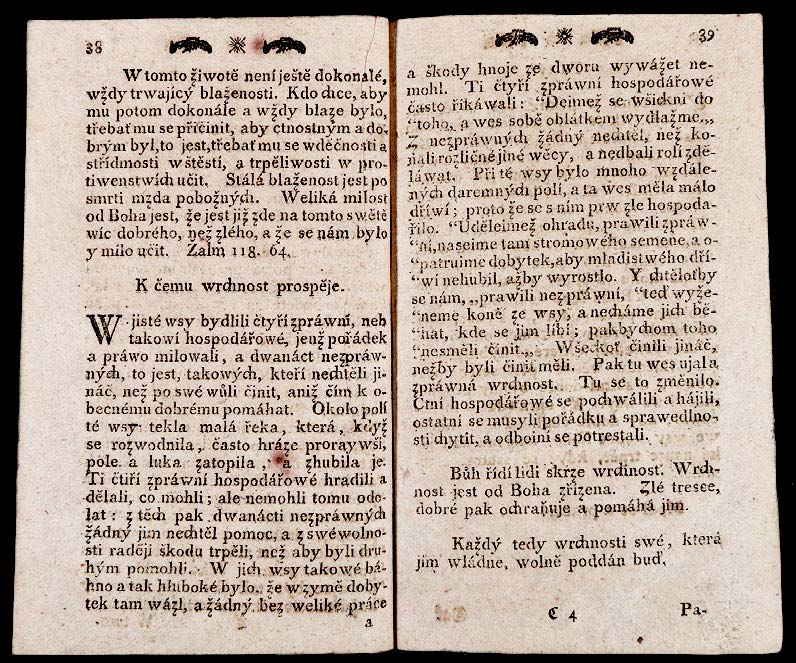 38
W tomto žiwotě není ještě dokonalé,
wždy trwajícý blaženosti. Kdo chce, aby
mu potom dokonále a wždy blaze bylo,
třebať mu se přičinit, aby ctnostným a do-
brým byl, to jest, třebať mu se wděčnosti a
střídmosti w štěstí, a trpěliwosti w pro-
tiwenstwích učit. Stálá blaženost jest po
smrti mzda pobožných. Weliká milost
od Boha jest, že jest již zde na tomto swětě
wíc dobrého, než zlého, a že se nám bylo
y milo učit. Žalm 118. 64.
K čemu wrchnost prospěje.
W jisté wsy bydlili čtyří zpráwní, neb
takowí hospodářowé, jenž pořádek
a práwo milowali, a dwanáct nezpráw-
ných, to jest, takowých, kteří nechtěli ji-
náč, než po swé wůli činit, aniž čím k o-
becnému dobrému pomáhat. Okolo polí
té wsy tekla malá řeka, která, když
se rozwodnila, často hráze proraywši,
pole a luka zatopila, a zhubila je.
Ti čtiří zpráwní hospodářowé hradili a
dělali, co mohli; ale nemohli tomu odo-
lat: z těch pak dwanácti nezpráwných
žádný jim nechtěl pomoc, a z swéwolno-
sti raději škodu trpěli, než aby byli dru-
hým pomohli. W jich wsy takowé bá-
hno a tak hluboké bylo, že w zymě doby-
tek tam wázl, a žádný bez weliké práce
a
39
a škody hnoje ze dworu wywážet ne-
mohl. Ti čtyří zpráwní hospodářowé
často říkáwali: “Dejmež se wšickni do
“toho, a wes sobě oblátkem wydlažme„.
Z nezpráwných žádný nechtěl, než ko-
nali rozličné jiné wěcy, a nedbali rolí zdě-
láwat. Při té wsy bylo mnoho wzdále-
ných daremných polí, a ta wes měla málo
dříwí; proto že se s ním prw zle hospoda-
řilo. “Udělejmež ohradu, prawili zpráw-
“ní, nasejme tam stromowého semene, a o-
“patrujme dobytek, aby mladistwého dří-
“wí nehubil, ažby wyrostlo. Y chtěloťby
se nám, „prawili nezpráwní, “teď wyže-
“neme koně ze wsy, a necháme jich bě-
“hat, kde se jim líbí; pakbychom toho
“nesměli činit„. Wšeckoť činili jináč,
nežby byli činit měli. Pak tu wes ujala
zpráwná wrchnost. Tu se to změnilo.
Ctní hospodářowé se pochwálili a hájili,
ostatní se musyli pořádku a sprawedlno-
sti chytit, a odbojní se potrestali.
Bůh řídí lidi skrze wrchnost. Wrch-
nost jest od Boha zřízena. Zlé tresce,
dobré pak ochraňuje a pomáhá jim.
Každý tedy wrchnosti swé, která
jim wládne, wolně poddán buď.
C 4
Pa-